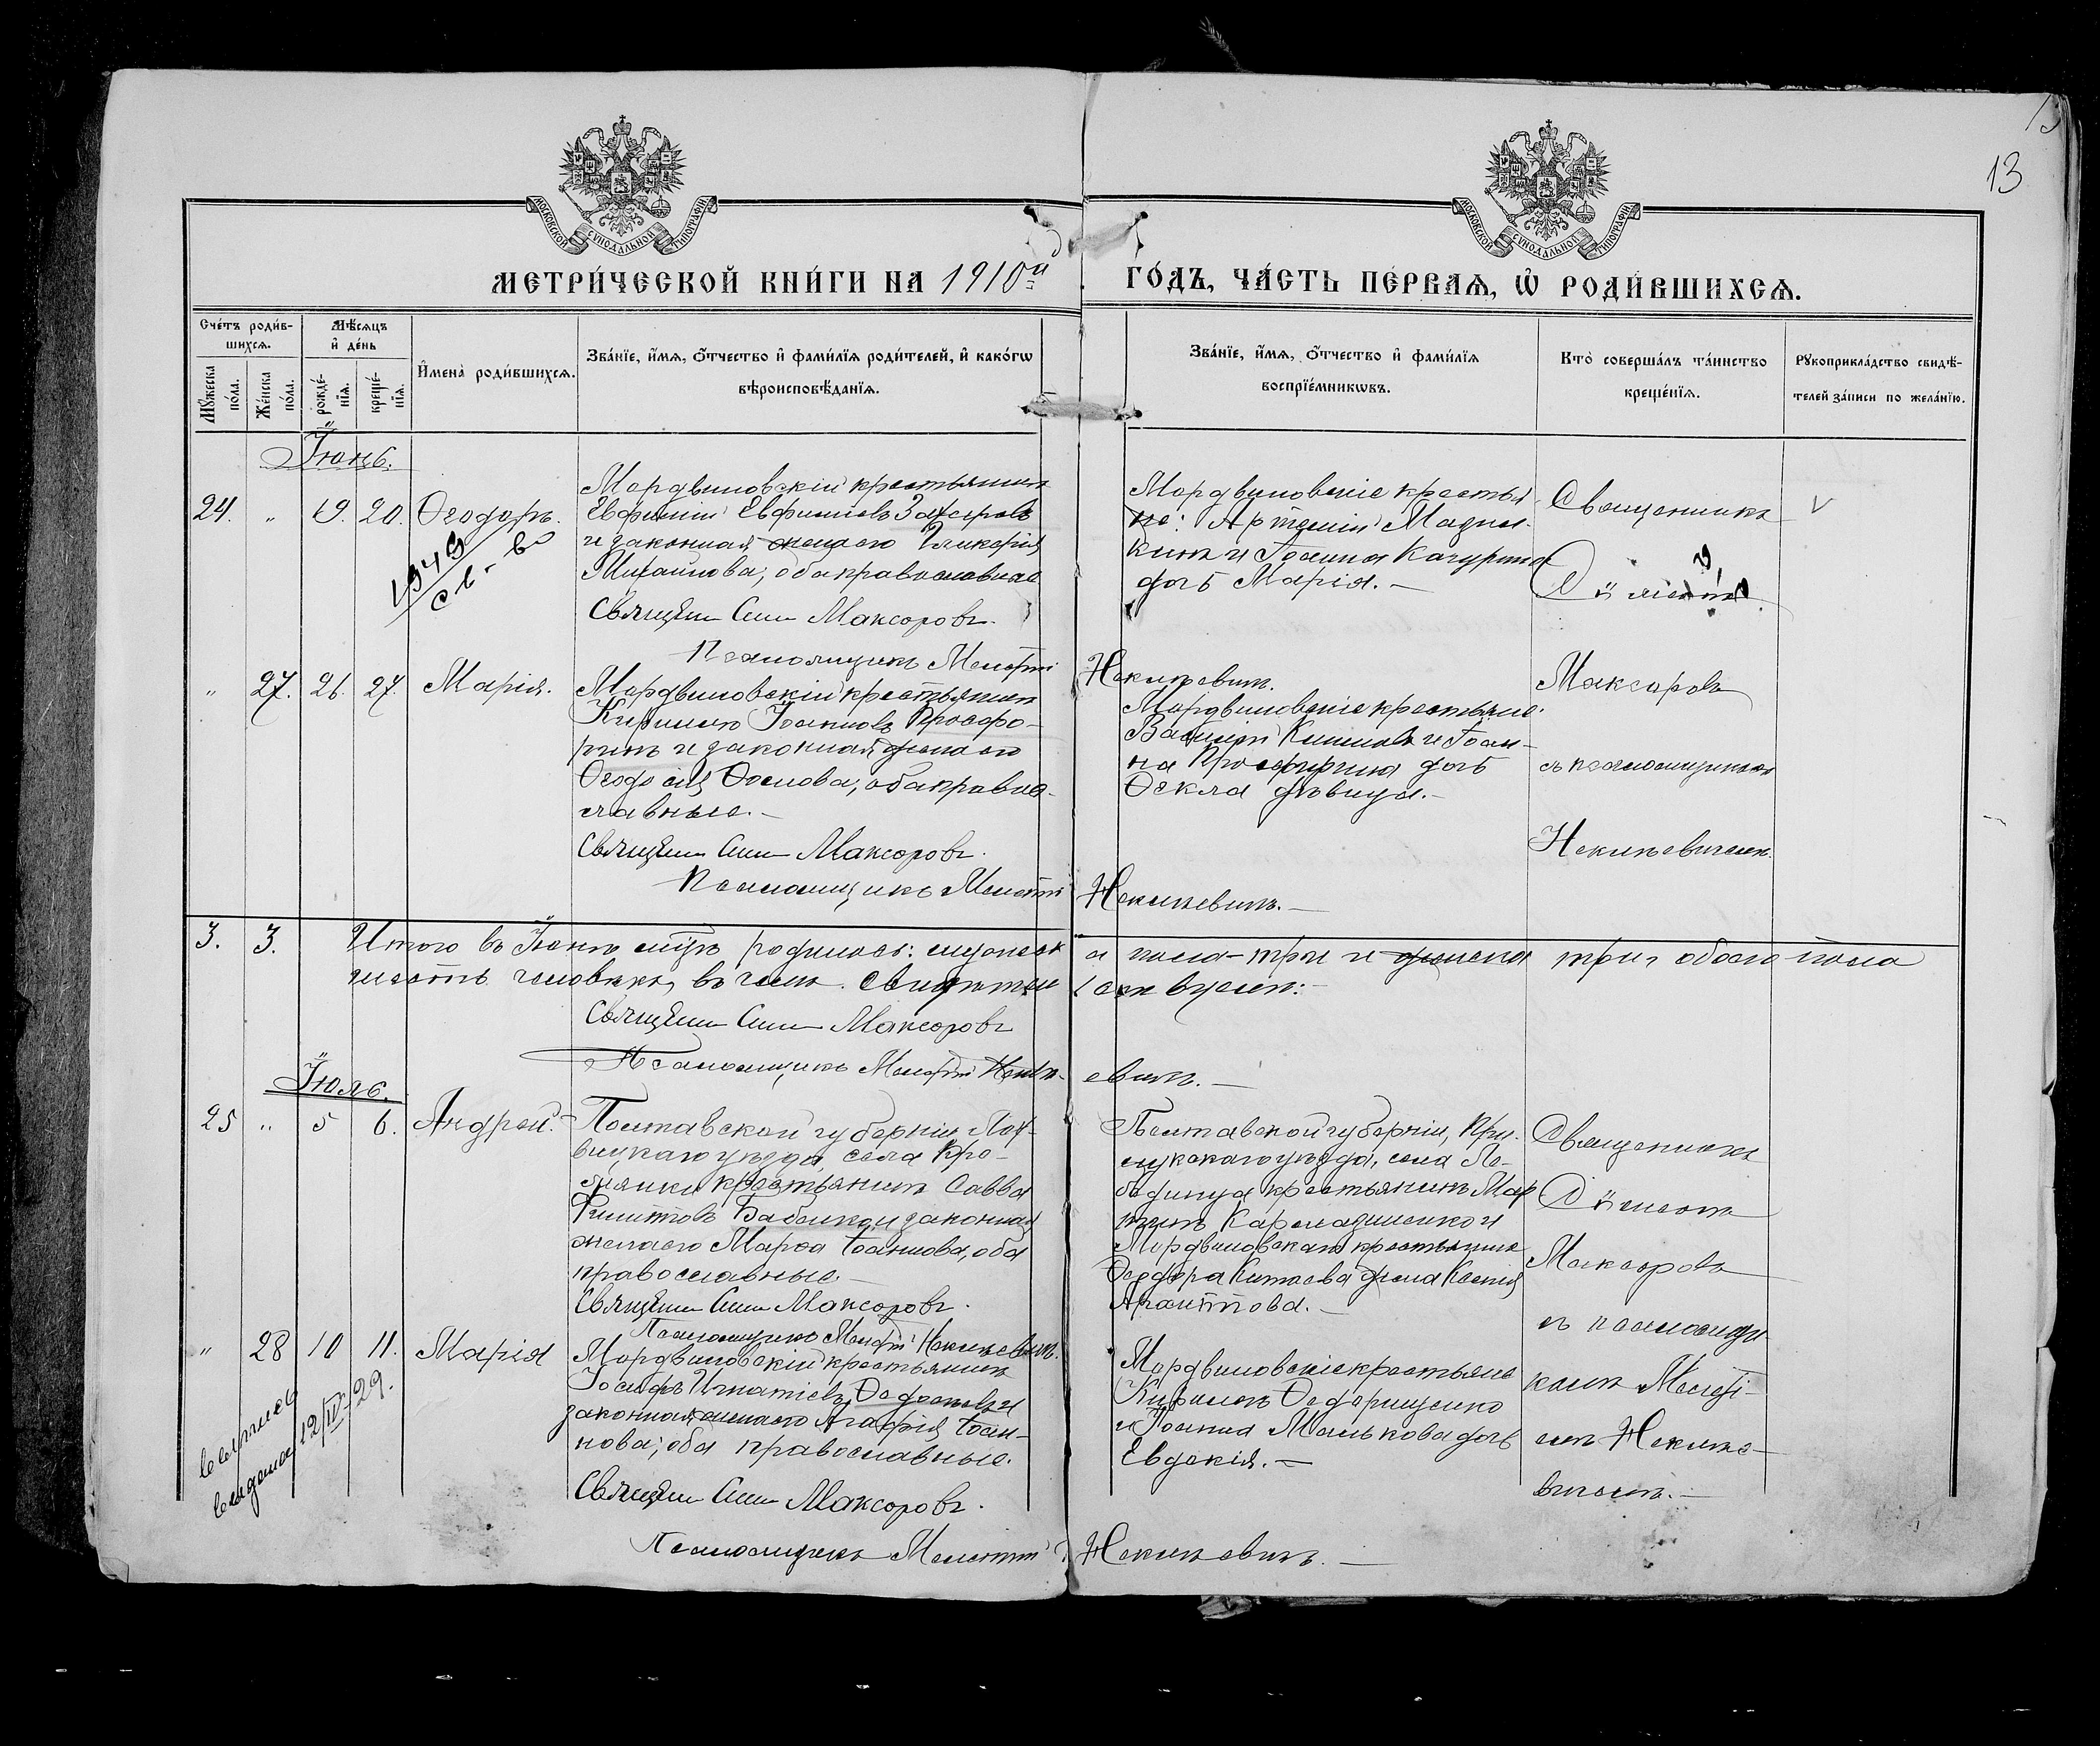 13
МОСКОВСКОЙ СѴНОДАЛЬНОЙ ТИПОГРАФІИ
МОСКОВСКОЙ СѴНОДАЛЬНОЙ ТИПОГРАФІИ
МЕТРИ́ЧЕСКОЙ КНИ́ГИ НА 1910й ГО́ДЪ, ЧА́СТЬ ПЕ́РВАѦ, Ѡ҆ РОДИ́ВШИХСѦ.
Сче́тъ роди́в-
шихсѧ.
Мꙋ́жеска
по́ла.
Же́нска
по́ла.
Мѣ́сѧцъ
и҆ де́нь
рожде́-
нїѧ.
креще́-
нїѧ.
И҆мена̀ роди́вшихсѧ.
Зва́нїе, и҆́мѧ, ѻ҆́тчество и҆ фами́лїѧ роди́телей, и҆ како́гѡ
вѣроисповѣ́данїѧ.
Зва́нїе, и҆́мѧ, ѻ҆́тчество и҆ фами́лїѧ
воспрїе́мникѡвъ.
Кто̀ соверша́лъ та́инство
креще́нїѧ.
Рꙋкоприкла́дство свидѣ́-
телей за́писи по жела́нїю.
Іюнь.
24. " 19. 20. Ѳеодоръ.
1949
св-во
Мордвиновскій крестьянинъ
Евфимій Евфимовъ Захаровъ
и законная жена его Гликерія
Михайлова; оба православные
Священ Сим Максоровъ.
Псаломщикъ Мелетій Некипевичъ.
Мордвиновскіе крестья-
не: Артемій
кинъ и Іоанна Качурина
дочь Марія. —
Священникъ
" 27. 26. 27. Марія.
Мордвиновскій крестьянинъ
Кириллъ Іоанновъ Просфо-
ринъ и законная жена его
Ѳеодосія, оба право-
славные. —
Священ Сим Максоровъ.
Псаломщикъ Мелетій Некипевичъ. —
Мордвиновскіе крестьяне:
Василій и Іоан-
на Просфорина дочь
Ѳекла дѣвица. —
Максоровъ
съ псаломщикомъ
Некипевичемъ.
3. 3. Итого въ Іюнѣ мцѣ родилось: мужеска пола - три и женска три, обоего пола
шесть человѣкъ, въ чемъ свидѣтельствуемъ: —
Священ Сим Максоровъ
Псаломщикъ Мелетій Некипевичъ. —
Іюль.
25 " 5 6. Андрей. —
Полтавской губерніи Лох-
вицкаго уѣзда, села
крестьянинъ Савва
Филиповъ Бабенко и законная
жена его Марѳа Іоаннова, оба
православные. —
Священ Сим Максоровъ.
Псаломщикъ Мелетій Некипевичъ.
Полтавской губерніи, При-
лукскаго уѣзда, села Ле-
бединца крестьянинъ Мар
тинъ Кармазиненко и
Мордвиновскаго крестьянина
Ѳеодора Китаева жена Ксенія
Священникъ
Симеонъ
Максоровъ
съ псаломщи-
комъ Мелеті-
емъ Некипе-
вичемъ. —
" 28 10 11. Марія
12/IV-29.
Мордвиновскій крестьянинъ
Іосифъ Игнатіевъ и
законная жена его Агафія Іоан-
нова; оба православные.
Священ Сим Максоровъ.
Псаломщикъ Мелетій Некипевичъ. —
Мордвиновскіе крестьяне
Кириллъ Ѳедорищенко
и Іоанна Малькова дочь
Евдокія. —